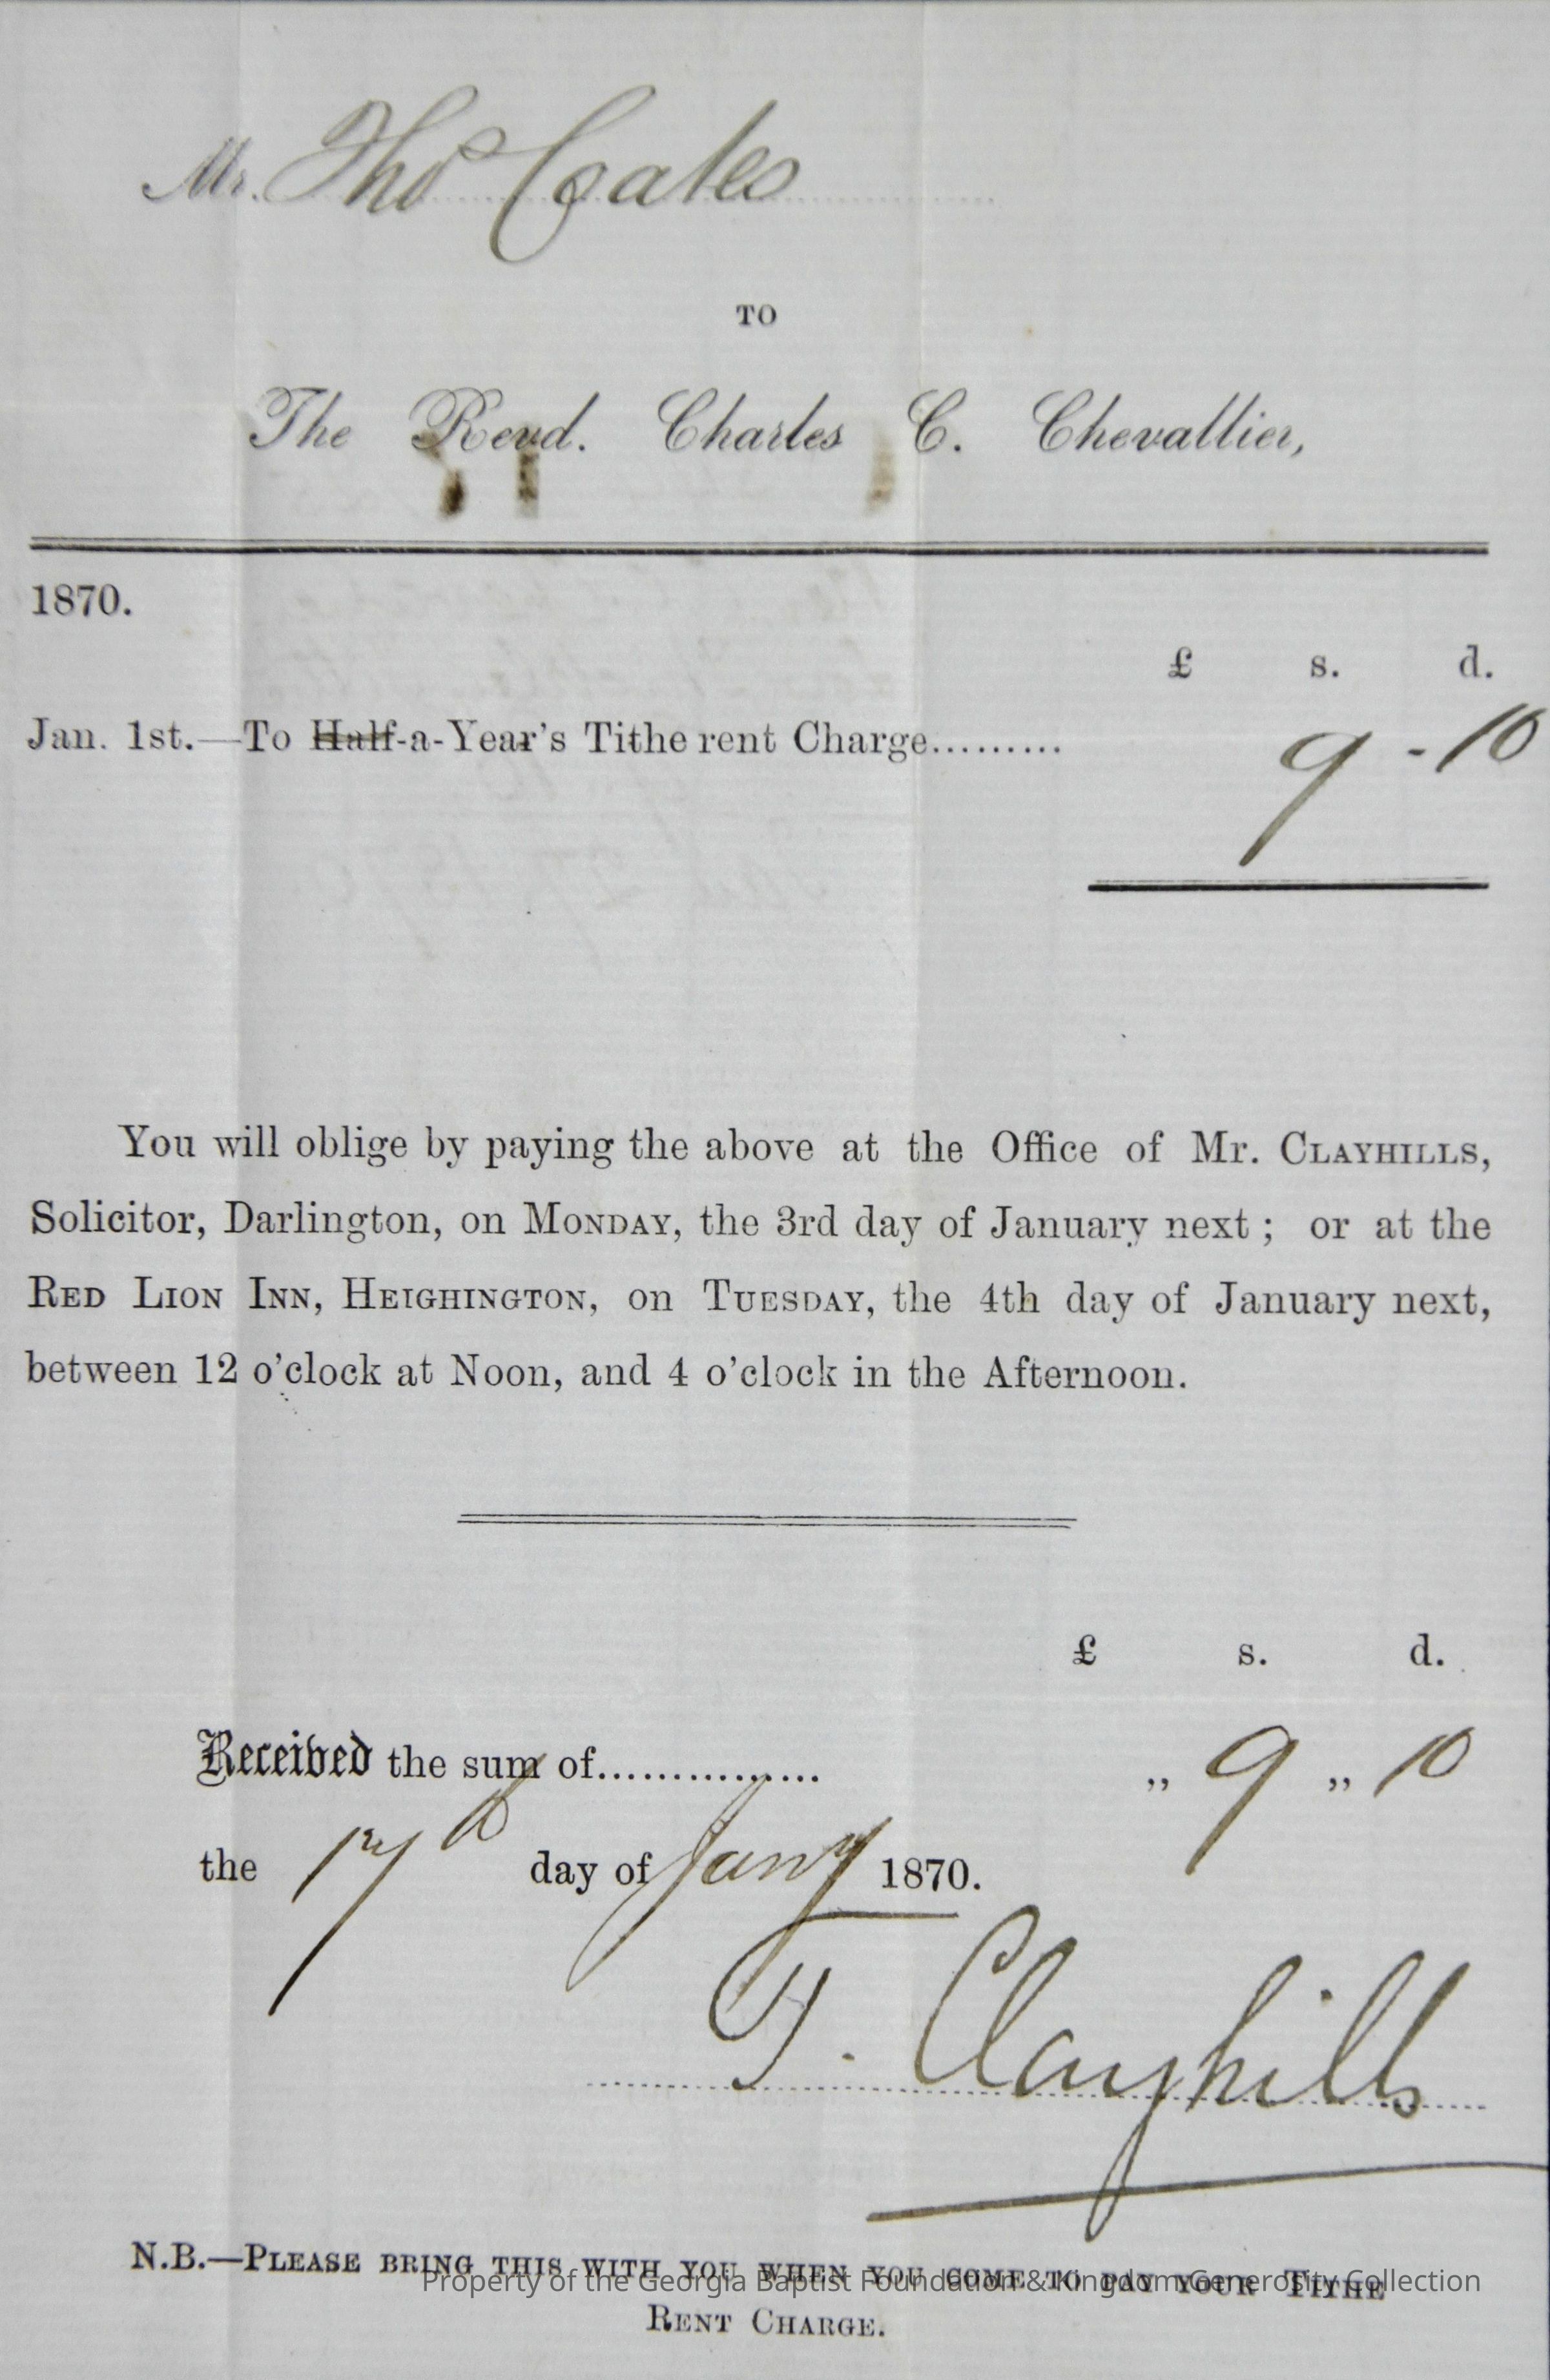 Mr. Thos Coates
TO
The Revd. Charles C. Chevallier,
1870.
£ s. d.
Jan. 1st.—To Half-a-Year's Tithe rent Charge......... 9 - 10
You will oblige by paying the above at the Office of Mr. CLAYHILLS,
Solicitor, Darlington, on MONDAY, the 3rd day of January next; or at the
RED LION INN, HEIGHINGTON, on TUESDAY, the 4th day of January next,
between 12 o'clock at Noon, and 4 o'clock in the Afternoon.
£ s. d.
Received the sum of............... „ 9 „ 10
the 17th day of Jany 1870.
T. Clayhills
N.B.—PLEASE BRING THIS WITH YOU WHEN YOU COME TO PAY YOUR TITHE
Property of the Georgia Baptist Foundation & Kingdom Generosity Collection
RENT CHARGE.